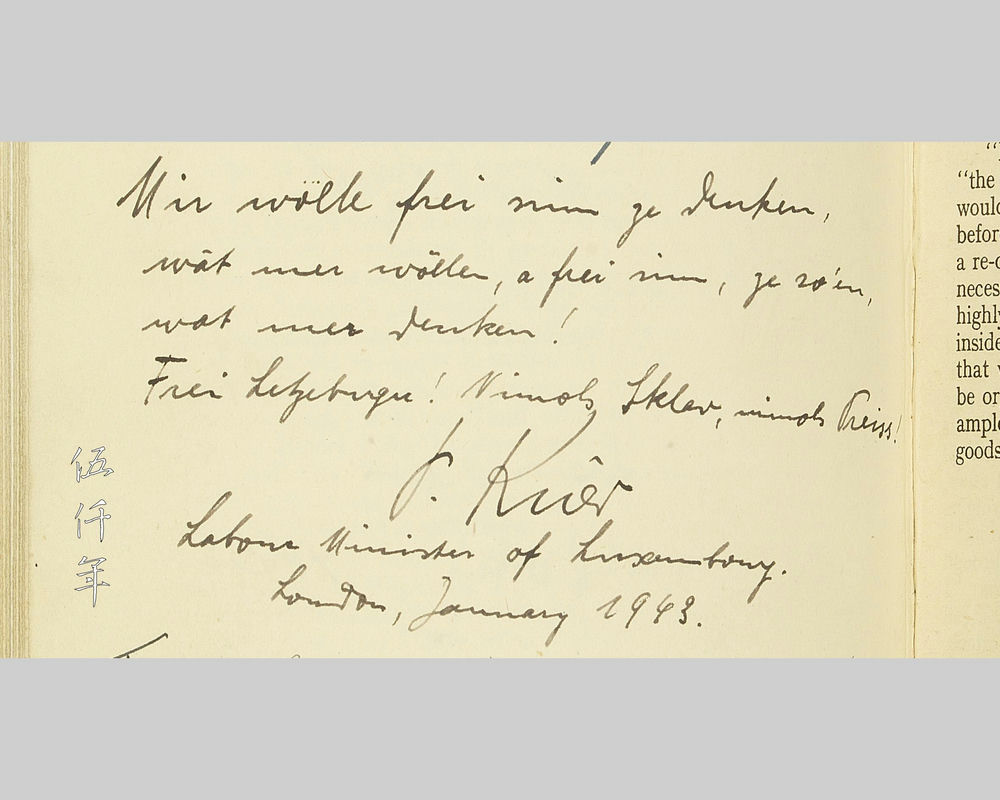 Mir wölle frei sinn ze denken,
wât mer wöllen, a frei sinn, ze so'en,
wat mer denken!
Frei Letzeburger! Nimols Sklav, nimols Preiss!
P. Krier
Labour Minister of Luxembourg.
London, January 1943.
伍仟年
"the
would
befor
a re-c
neces
highly
inside
that w
be or
ample
goods